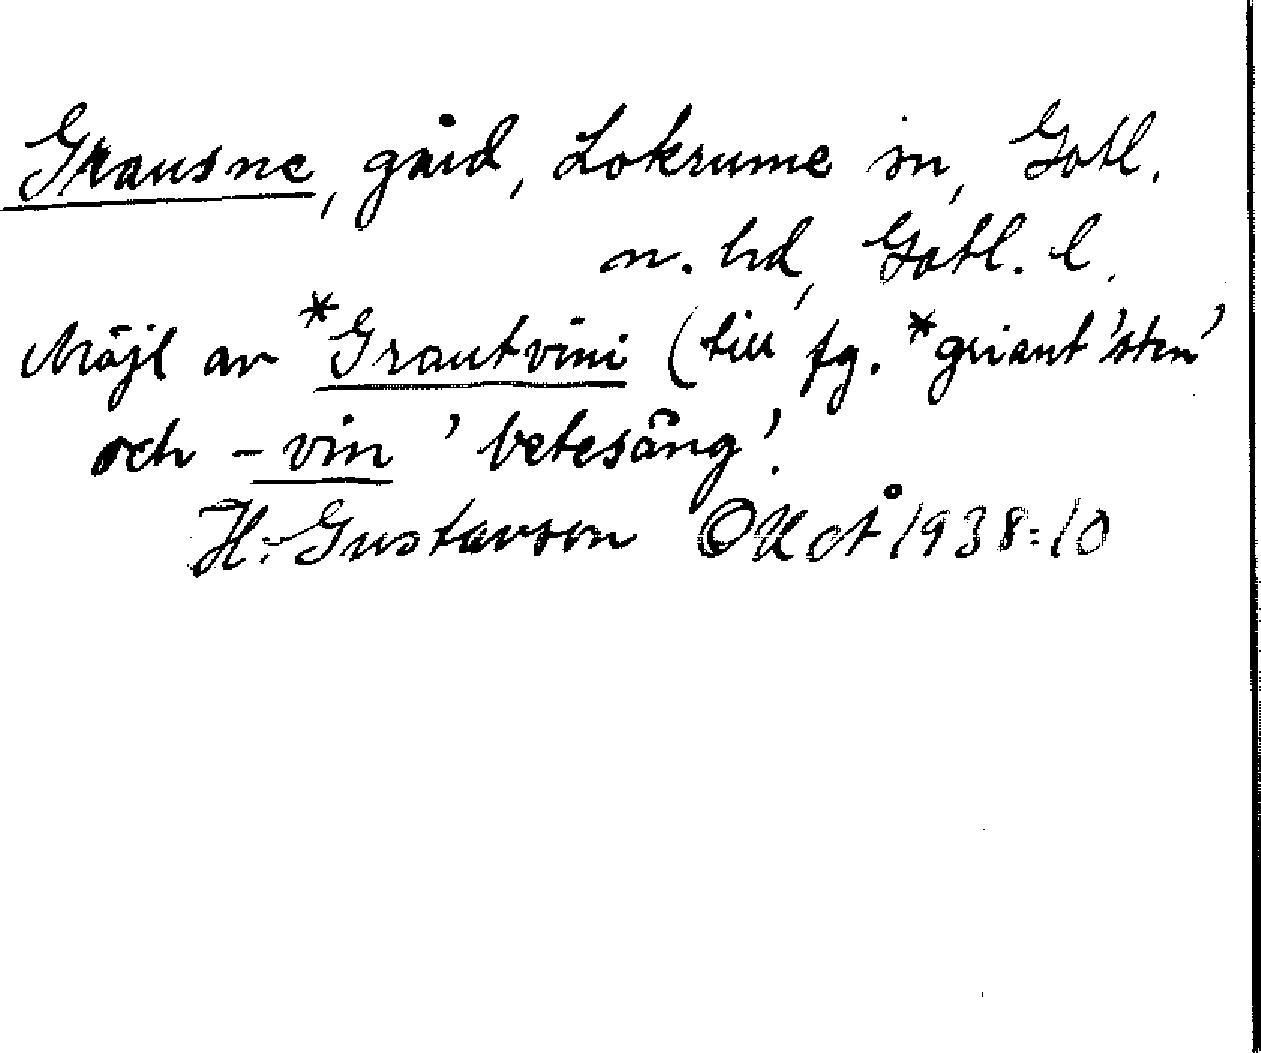 Grausne, gård, Lokrume sn, Gotl.
n. hd, Gotl. l.
Möjl av *Grautvini (till fg. *griaut 'sten'
och -vin 'betesäng'.
H. Gustavson OUoÅ 1938:10